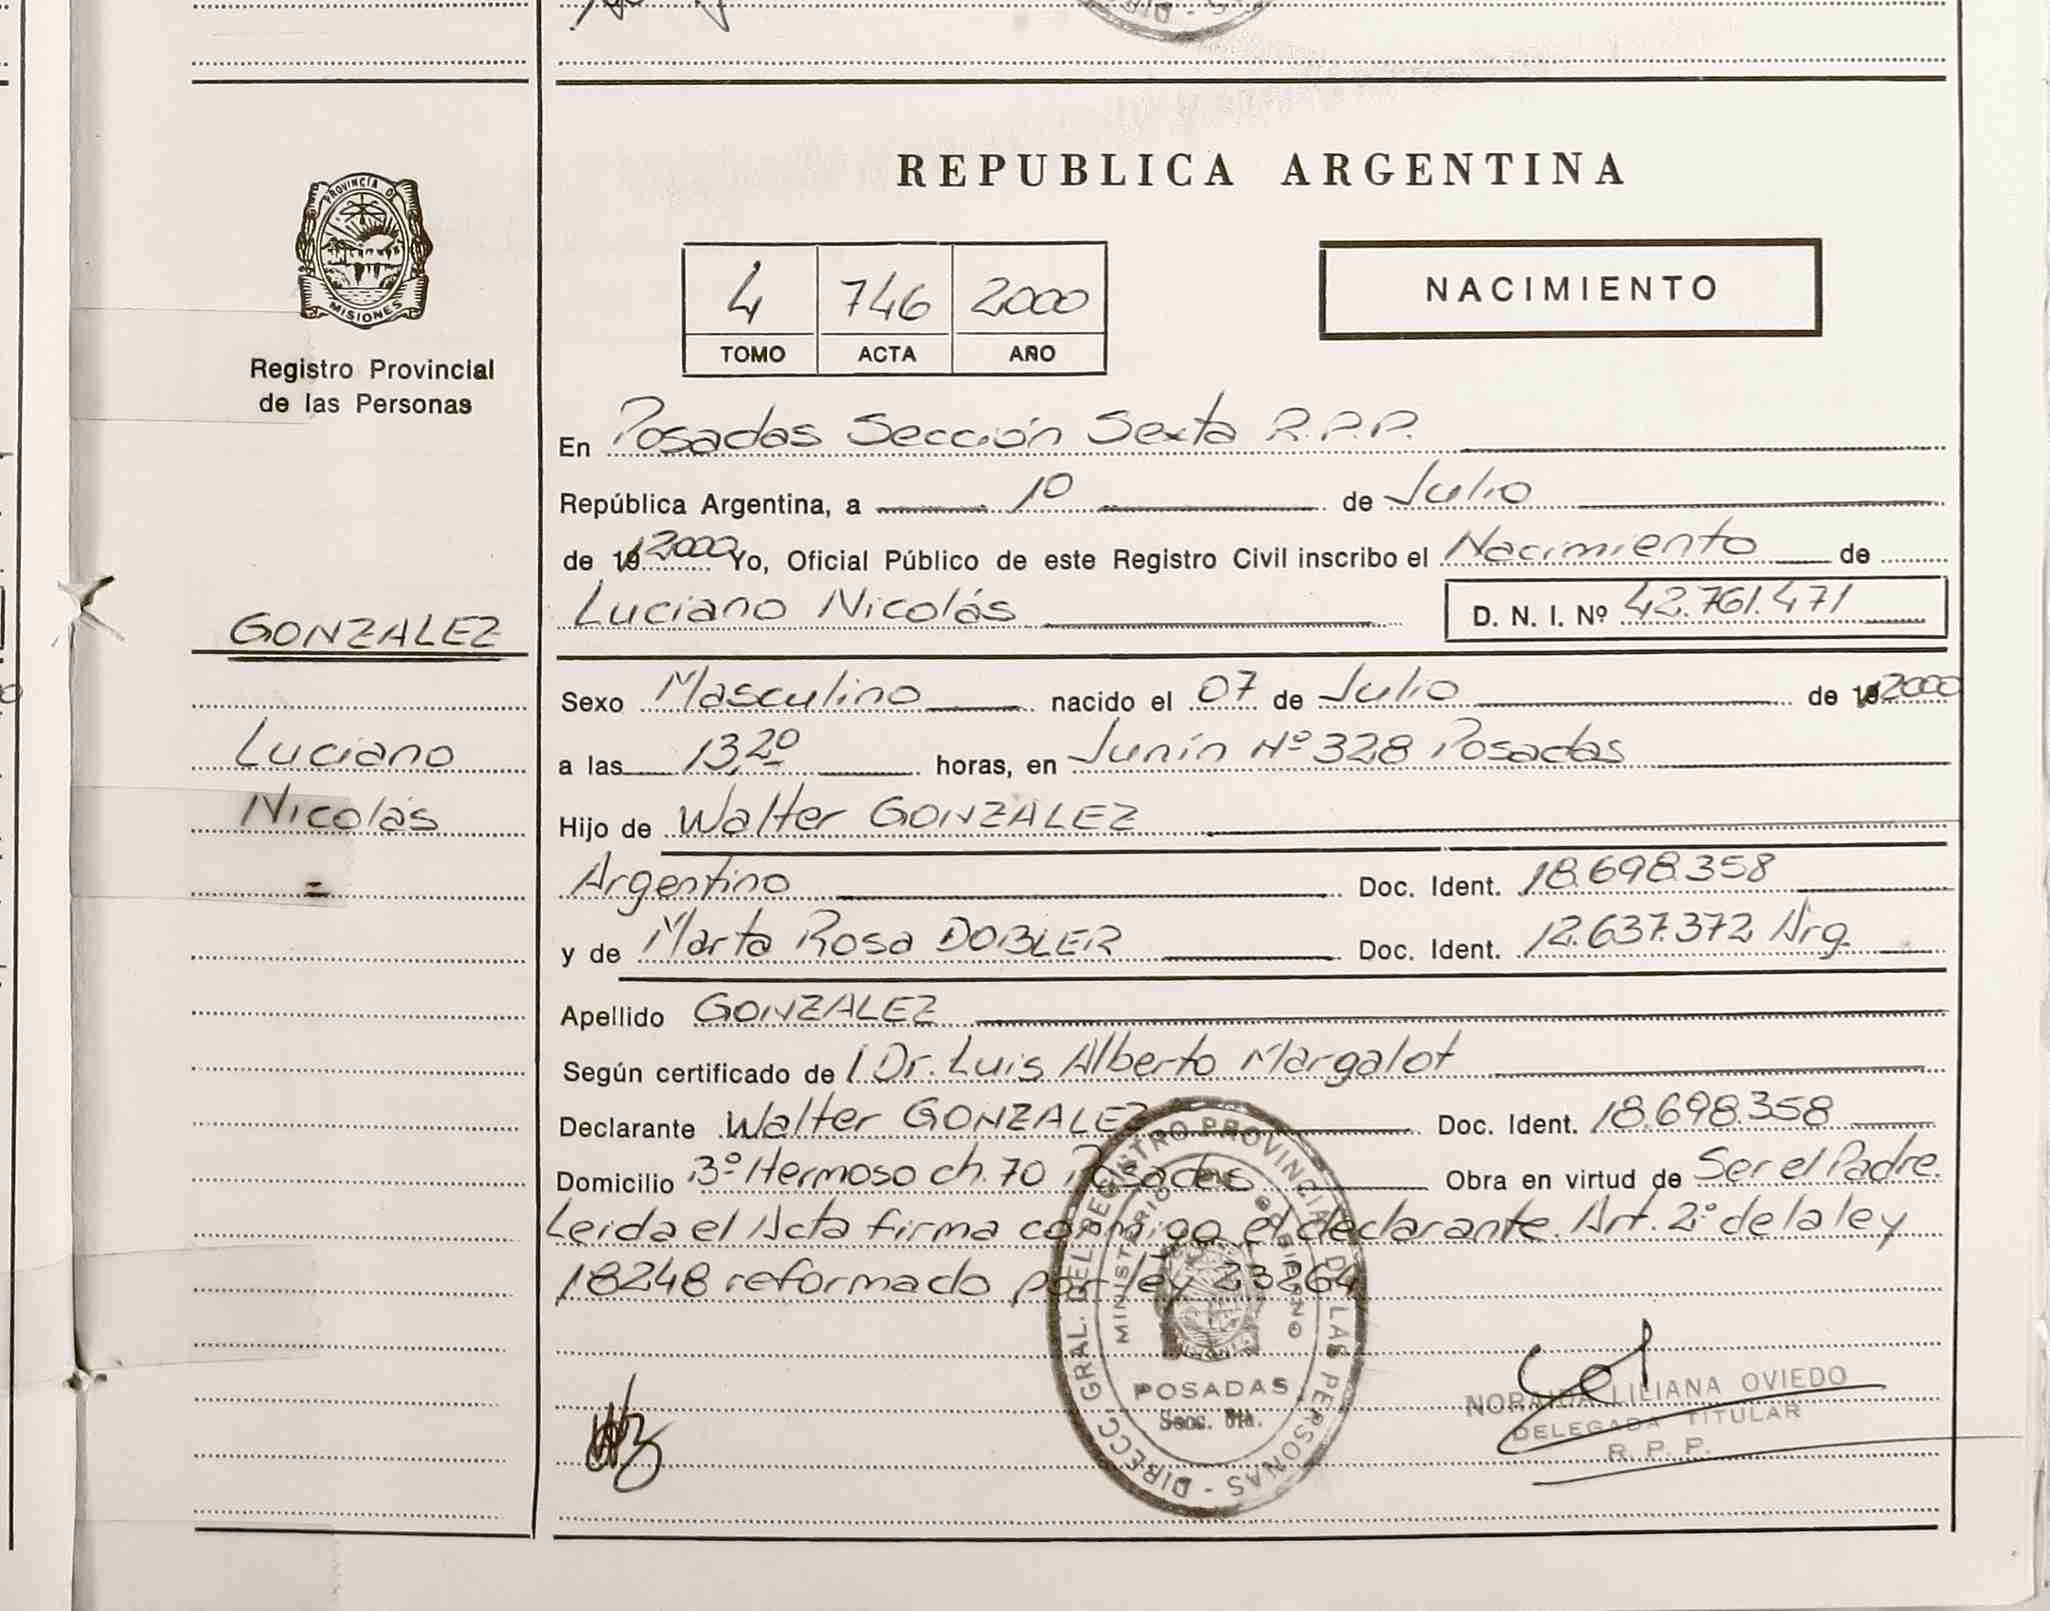 PROVINCIA DE
MISIONES
Registro Provincial
de las Personas
GONZALEZ
Luciano
Nicolás
=
REPUBLICA ARGENTINA
4 746 2000
TOMO ACTA AÑO
NACIMIENTO
En Posadas Sección Sexta R.P.P.
República Argentina, a 10 de Julio
de 19 2000 Yo, Oficial Público de este Registro Civil inscribo el Nacimiento de
Luciano Nicolás D. N. I. Nº 42.761.471
Sexo Masculino nacido el 07 de Julio de 19 2000
a las 13,20 horas, en Junín Nº 328 Posadas
Hijo de Walter GONZALEZ
Argentino Doc. Ident. 18.698.358
y de Marta Rosa DOBLER Doc. Ident. 12.637.372 Arg.
Apellido GONZALEZ
Según certificado de l Dr. Luis Alberto Margalot
Declarante Walter GONZALEZ Doc. Ident. 18.698.358
Domicilio Bº Hermoso ch. 70 Posadas Obra en virtud de Ser el Padre.
Leida el Acta firma conmigo el declarante. Art. 2º de la ley
18248 reformado por ley 23264
DIRECC. GRAL. DEL REGISTRO PROVINCIAL DE LAS PERSONAS -
MINISTERIO DE GOBIERNO
POSADAS
Secc. 6ta.
NORAIDA LILIANA OVIEDO
DELEGADA TITULAR
R. P. P.